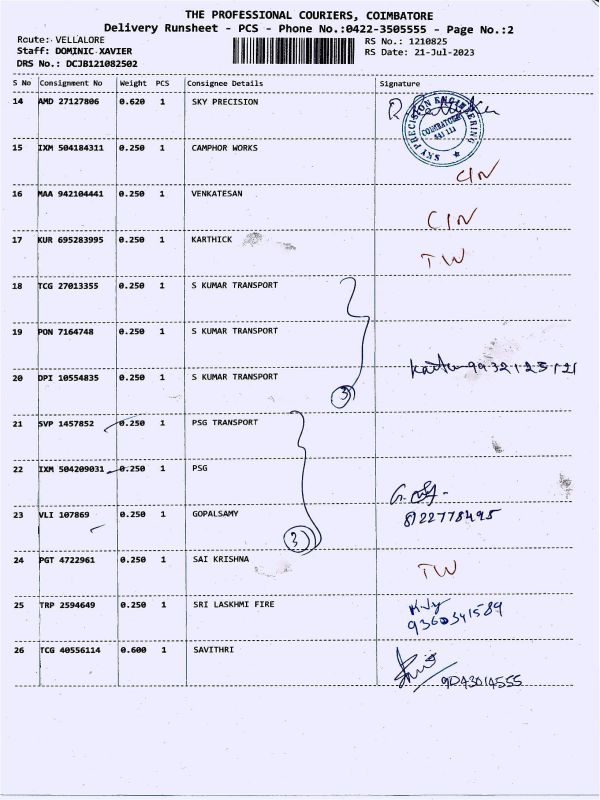 THE PROFESSIONAL COURIERS, COIMBATORE
Delivery Runsheet - PCS - Phone No.:0422-3505555 - Page No.:2
Route: VELLALORE
RS No.: 1210825
Staff: DOMINIC XAVIER
RS Date: 21-Jul-2023
DRS No.: DCJB121082502
S No Consignment No Weight PCS Consignee Details Signature
14 AMD 27127806 0.620 1 SKY PRECISION
SKY PRECISION ENGINEERING COIMBATORE 641 111
15 IXM 504184311 0.250 1 CAMPHOR WORKS
CIN
16 MAA 942104441 0.250 1 VENKATESAN
CIN
17 KUR 695283995 0.250 1 KARTHICK
TW
18 TCG 27013355 0.250 1 S KUMAR TRANSPORT
19 PON 7164748 0.250 1 S KUMAR TRANSPORT
20 DPI 10554835 0.250 1 S KUMAR TRANSPORT
3
21 SVP 1457852 0.250 1 PSG TRANSPORT
22 IXM 504209031 0.250 1 PSG
23 VLI 107869 0.250 1 GOPALSAMY
8122778495
3
24 PGT 4722961 0.250 1 SAI KRISHNA
TW
25 TRP 2594649 0.250 1 SRI LASKHMI FIRE
9360341589
26 TCG 40556114 0.600 1 SAVITHRI